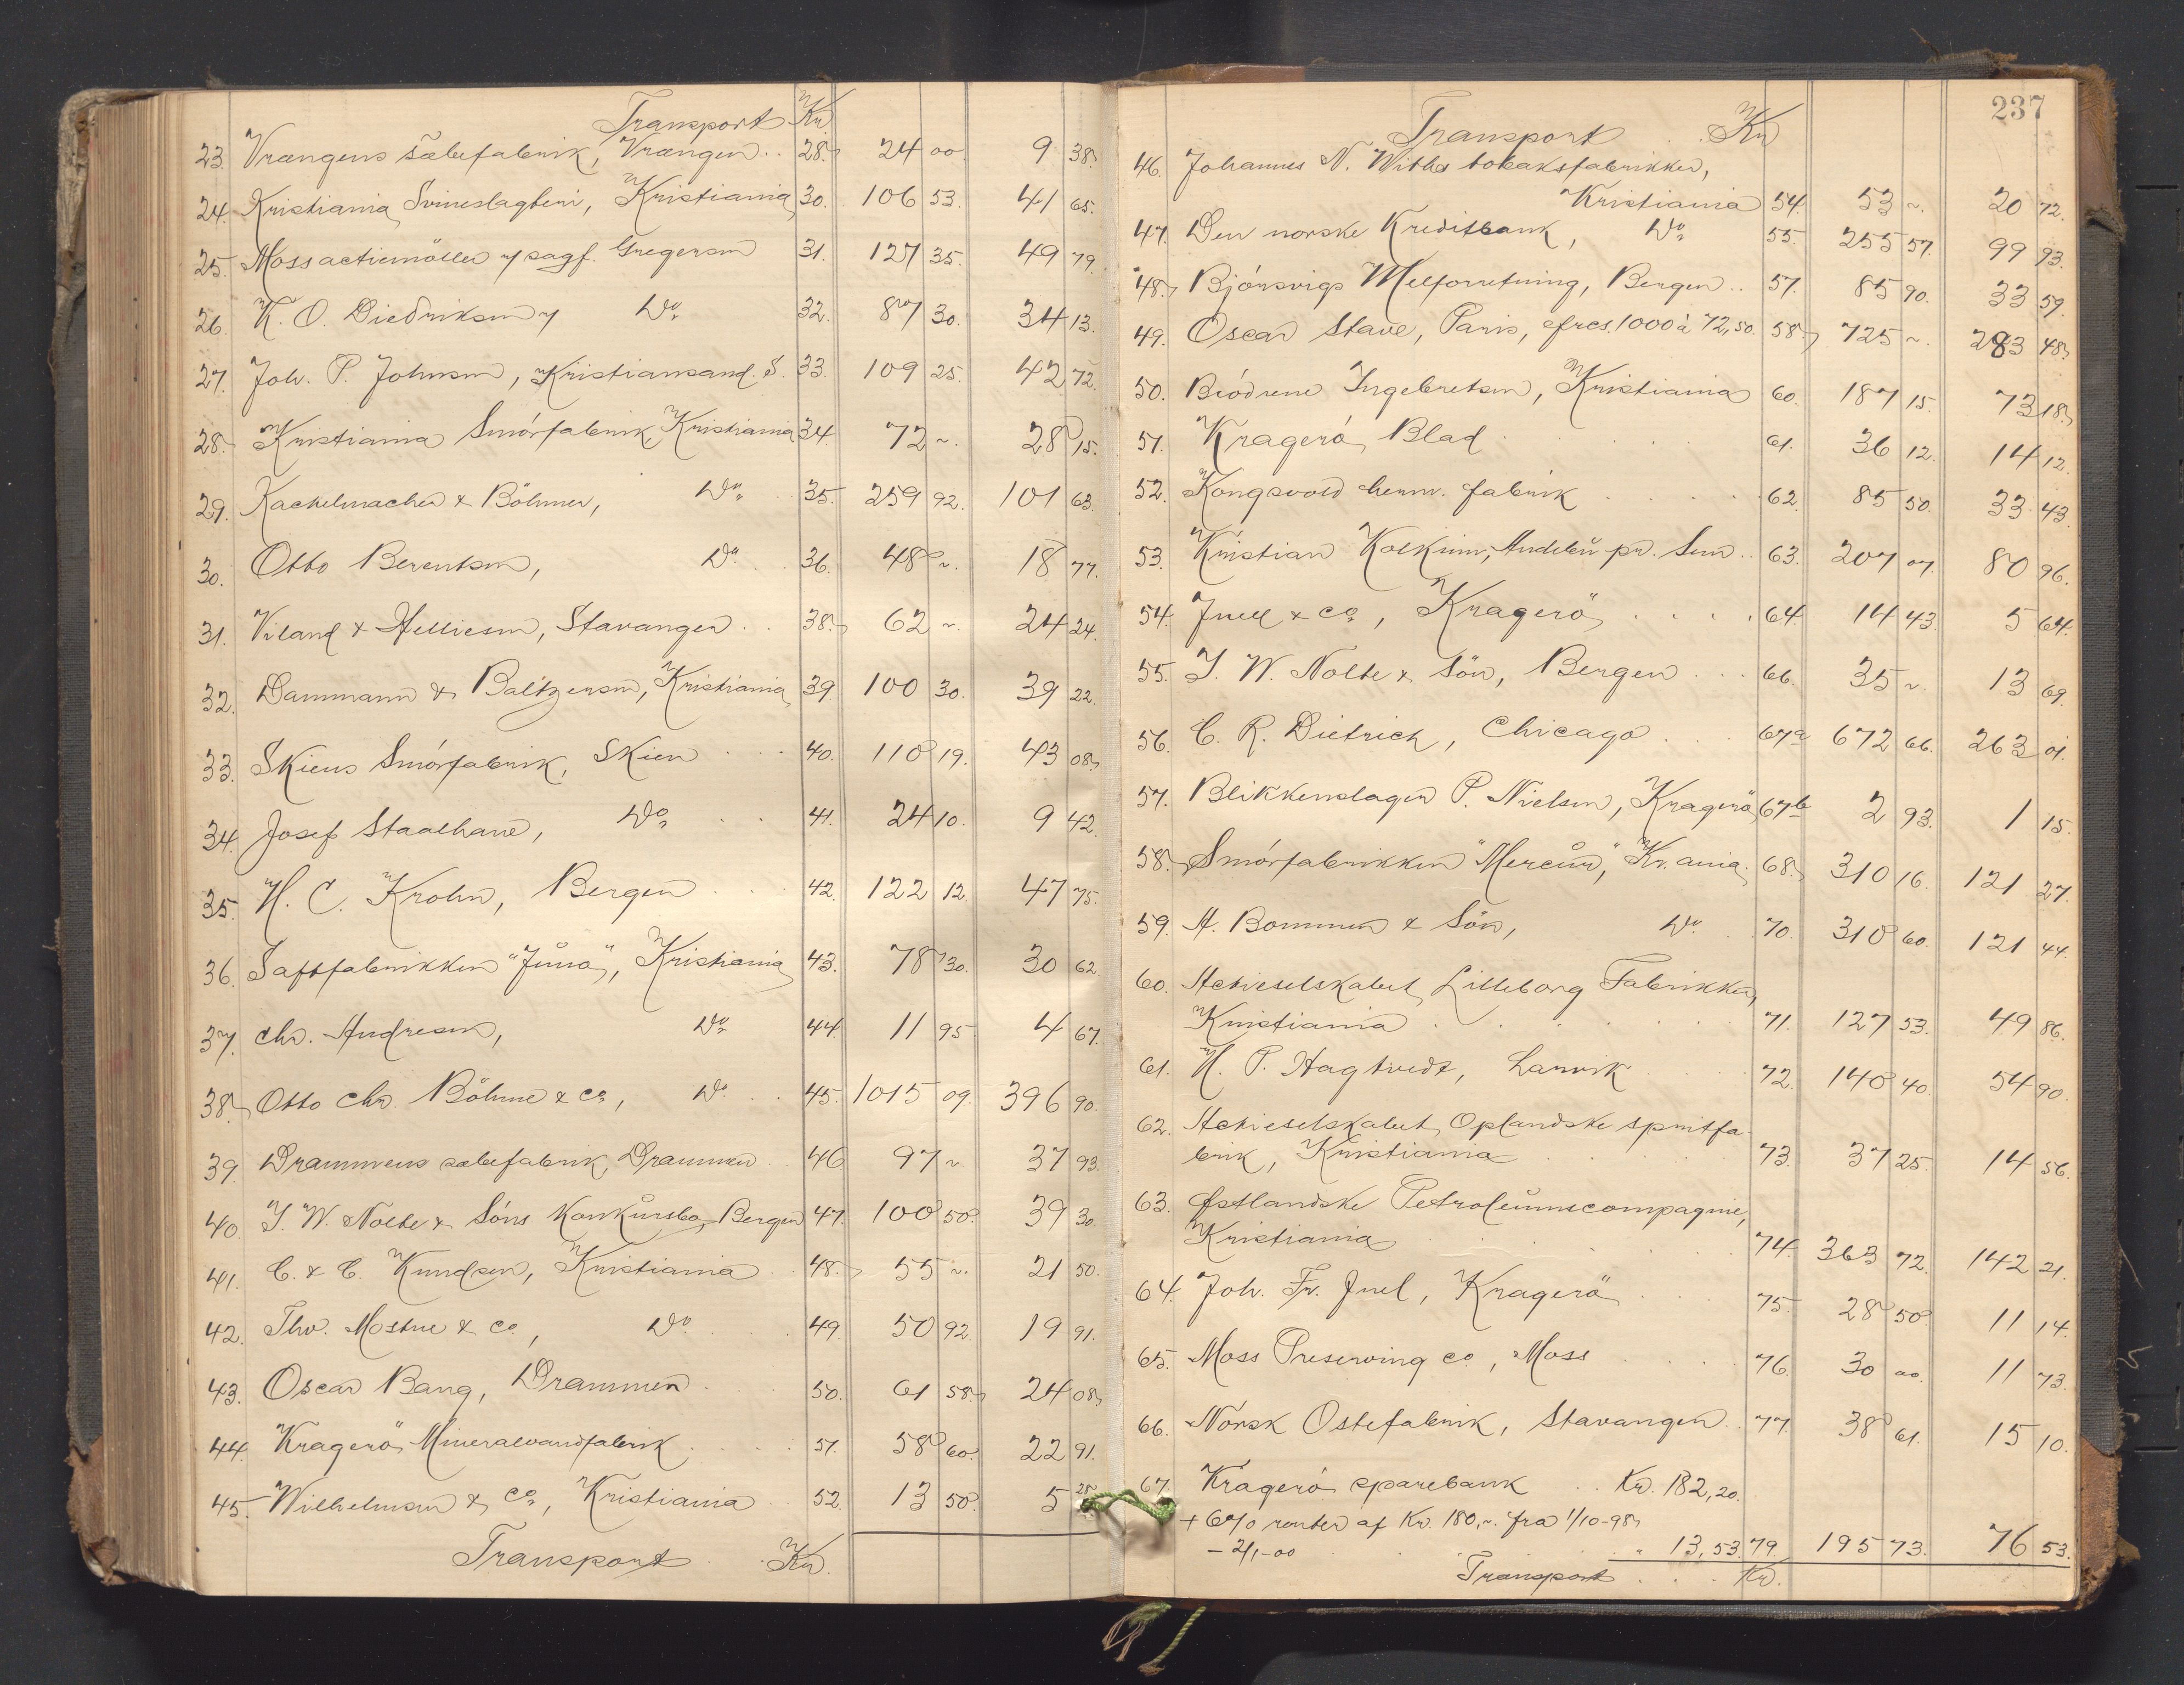 Transport Kr
23. Vrængens Sæbefabrik, Vrængen .. 28. 24 00. 9 38.
24. Kristiania Svineslagteri, Kristiania 30. 106 53. 41 65.
25. Moss actiemöller v/ sagf. Gregersen 31. 127 35. 49 79.
26. K. O. Diedriksen v/ Do. 32. 87 30. 34 13.
27. Joh. P. Johnsen, Kristiansand. S. 33. 109 25. 42 72.
28. Kristiania Smörfabrik, Kristiania 34. 72 ~. 28 15.
29. Kachelmacher & Böhmer, Do. 35. 259 92. 101 63.
30. Otto Berentsen, Do. 36. 48 ~. 18 77.
31. Viland & Helliesen, Stavanger .. 38. 62 ~. 24 24.
32. Dammann & Baltzersen, Kristiania 39. 100 30. 39 22.
33. Skiens Smörfabrik, Skien 40. 110 19. 43 08.
34. Josef Staalhane, Do. 41. 24 10. 9 42.
35. H. C. Krohn, Bergen 42. 122 12. 47 75.
36. Saftfabrikken "Juno", Kristiania 43. 78 30. 30 62.
37. Chr. Andresen, Do. 44. 11 95. 4 67.
38. Otto Chr. Böhme & Co., Do. 45. 1015 09. 396 90.
39. Drammens sæbefabrik, Drammen 46. 97 ~. 37 93.
40. J. W. Nolte & Söns Konkursbo, Bergen 47. 100 50. 39 30.
41. C. & C. Knudsen, Kristiania 48. 55 ~. 21 50.
42. Thv. Mostue & Co., Do. 49. 50 92. 19 91.
43. Oscar Bang, Drammen 50. 61 58. 24 08.
44. Kragerö Mineralvandfabrik 51. 58 60. 22 91.
45. Wilhelmsen & Co., Kristiania 52. 13 50. 5 28.
Transport Kr.
237
Transport Kr
46. Johannes N. Withs tobaksfabrikker,
Kristiania 54. 53 ~. 20 72.
47. Den norske Kreditbank, Do. 55. 255 57. 99 93.
48. Björsvigs Melforretning, Bergen .. 57. 85 90. 33 59.
49. Oscar Stave, Paris, frcs. 1000 à 72,50. 58. 725 ~. 283 48.
50. Brödrene Ingebretsen, Kristiania 60. 187 15. 73 18.
51. Kragerö Blad 61. 36 12. 14 12.
52. Kongsvold chem. fabrik 62. 85 50. 33 43.
53. Kristian Kolkinn, Andebu pr. Sem .. 63. 207 07. 80 96.
54. Juell & Co., Kragerö 64. 14 43. 5 64.
55. J. W. Nolte & Sön, Bergen 66. 35 ~. 13 69.
56. C. R. Dietrich, Chicago 67a 672 66. 263 01.
57. Blikkenslager P. Nielsen, Kragerö 67b 2 93. 1 15.
58. Smörfabrikken "Mercur", Kr.ania. 68. 310 16. 121 27.
59. A. Bommen & Sön, Do. 70. 310 60. 121 44.
60. Actieselskabet Lilleborg Fabrikker,
Kristiania 71. 127 53. 49 86.
61. H. P. Hagtvedt, Larvik 72. 140 40. 54 90.
62. Actieselskabet Oplandske spritfa-
brik, Kristiania 73. 37 25. 14 56.
63. Østlandske Petroleumscompagnie,
Kristiania 74. 363 72. 142 21.
64. Joh. Fr. Juel, Kragerö 75. 28 50. 11 14.
65. Moss Preserving Co., Moss 76. 30 00. 11 73.
66. Norsk Ostefabrik, Stavanger .. 77. 38 61. 15 10.
67. Kragerö sparebank .. Kr. 182,20.
+ 6% renter af Kr. 180,~. fra 1/10-98
- 2/1-00 " 13,53. 79. 195 73. 76 53.
Transport Kr.